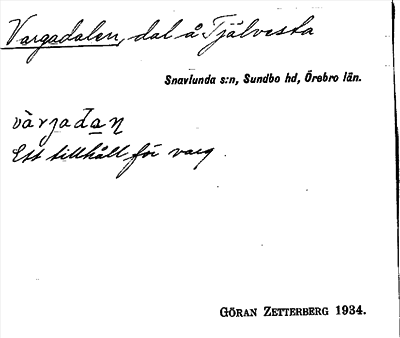 Vargadalen, dal å Tjälvesta
Snavlunda s:n, Sundbo hd, Örebro län.
vàrgadaṉ
Ett tillhåll för varg.
GÖRAN ZETTERBERG 1934.